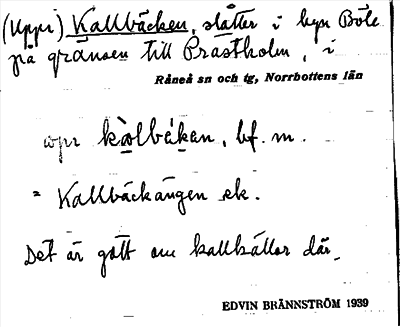 (Uppi) Kallbäcken, slåtter i byn Böle
på gränsen till Prästholm, i
Råneå sn och tg, Norrbottens län
uppi kàlbäkan, bf. m.
= Kallbäckängen ek.
Det är gott om kallkällor där.
EDVIN BRÄNNSTRÖM 1939